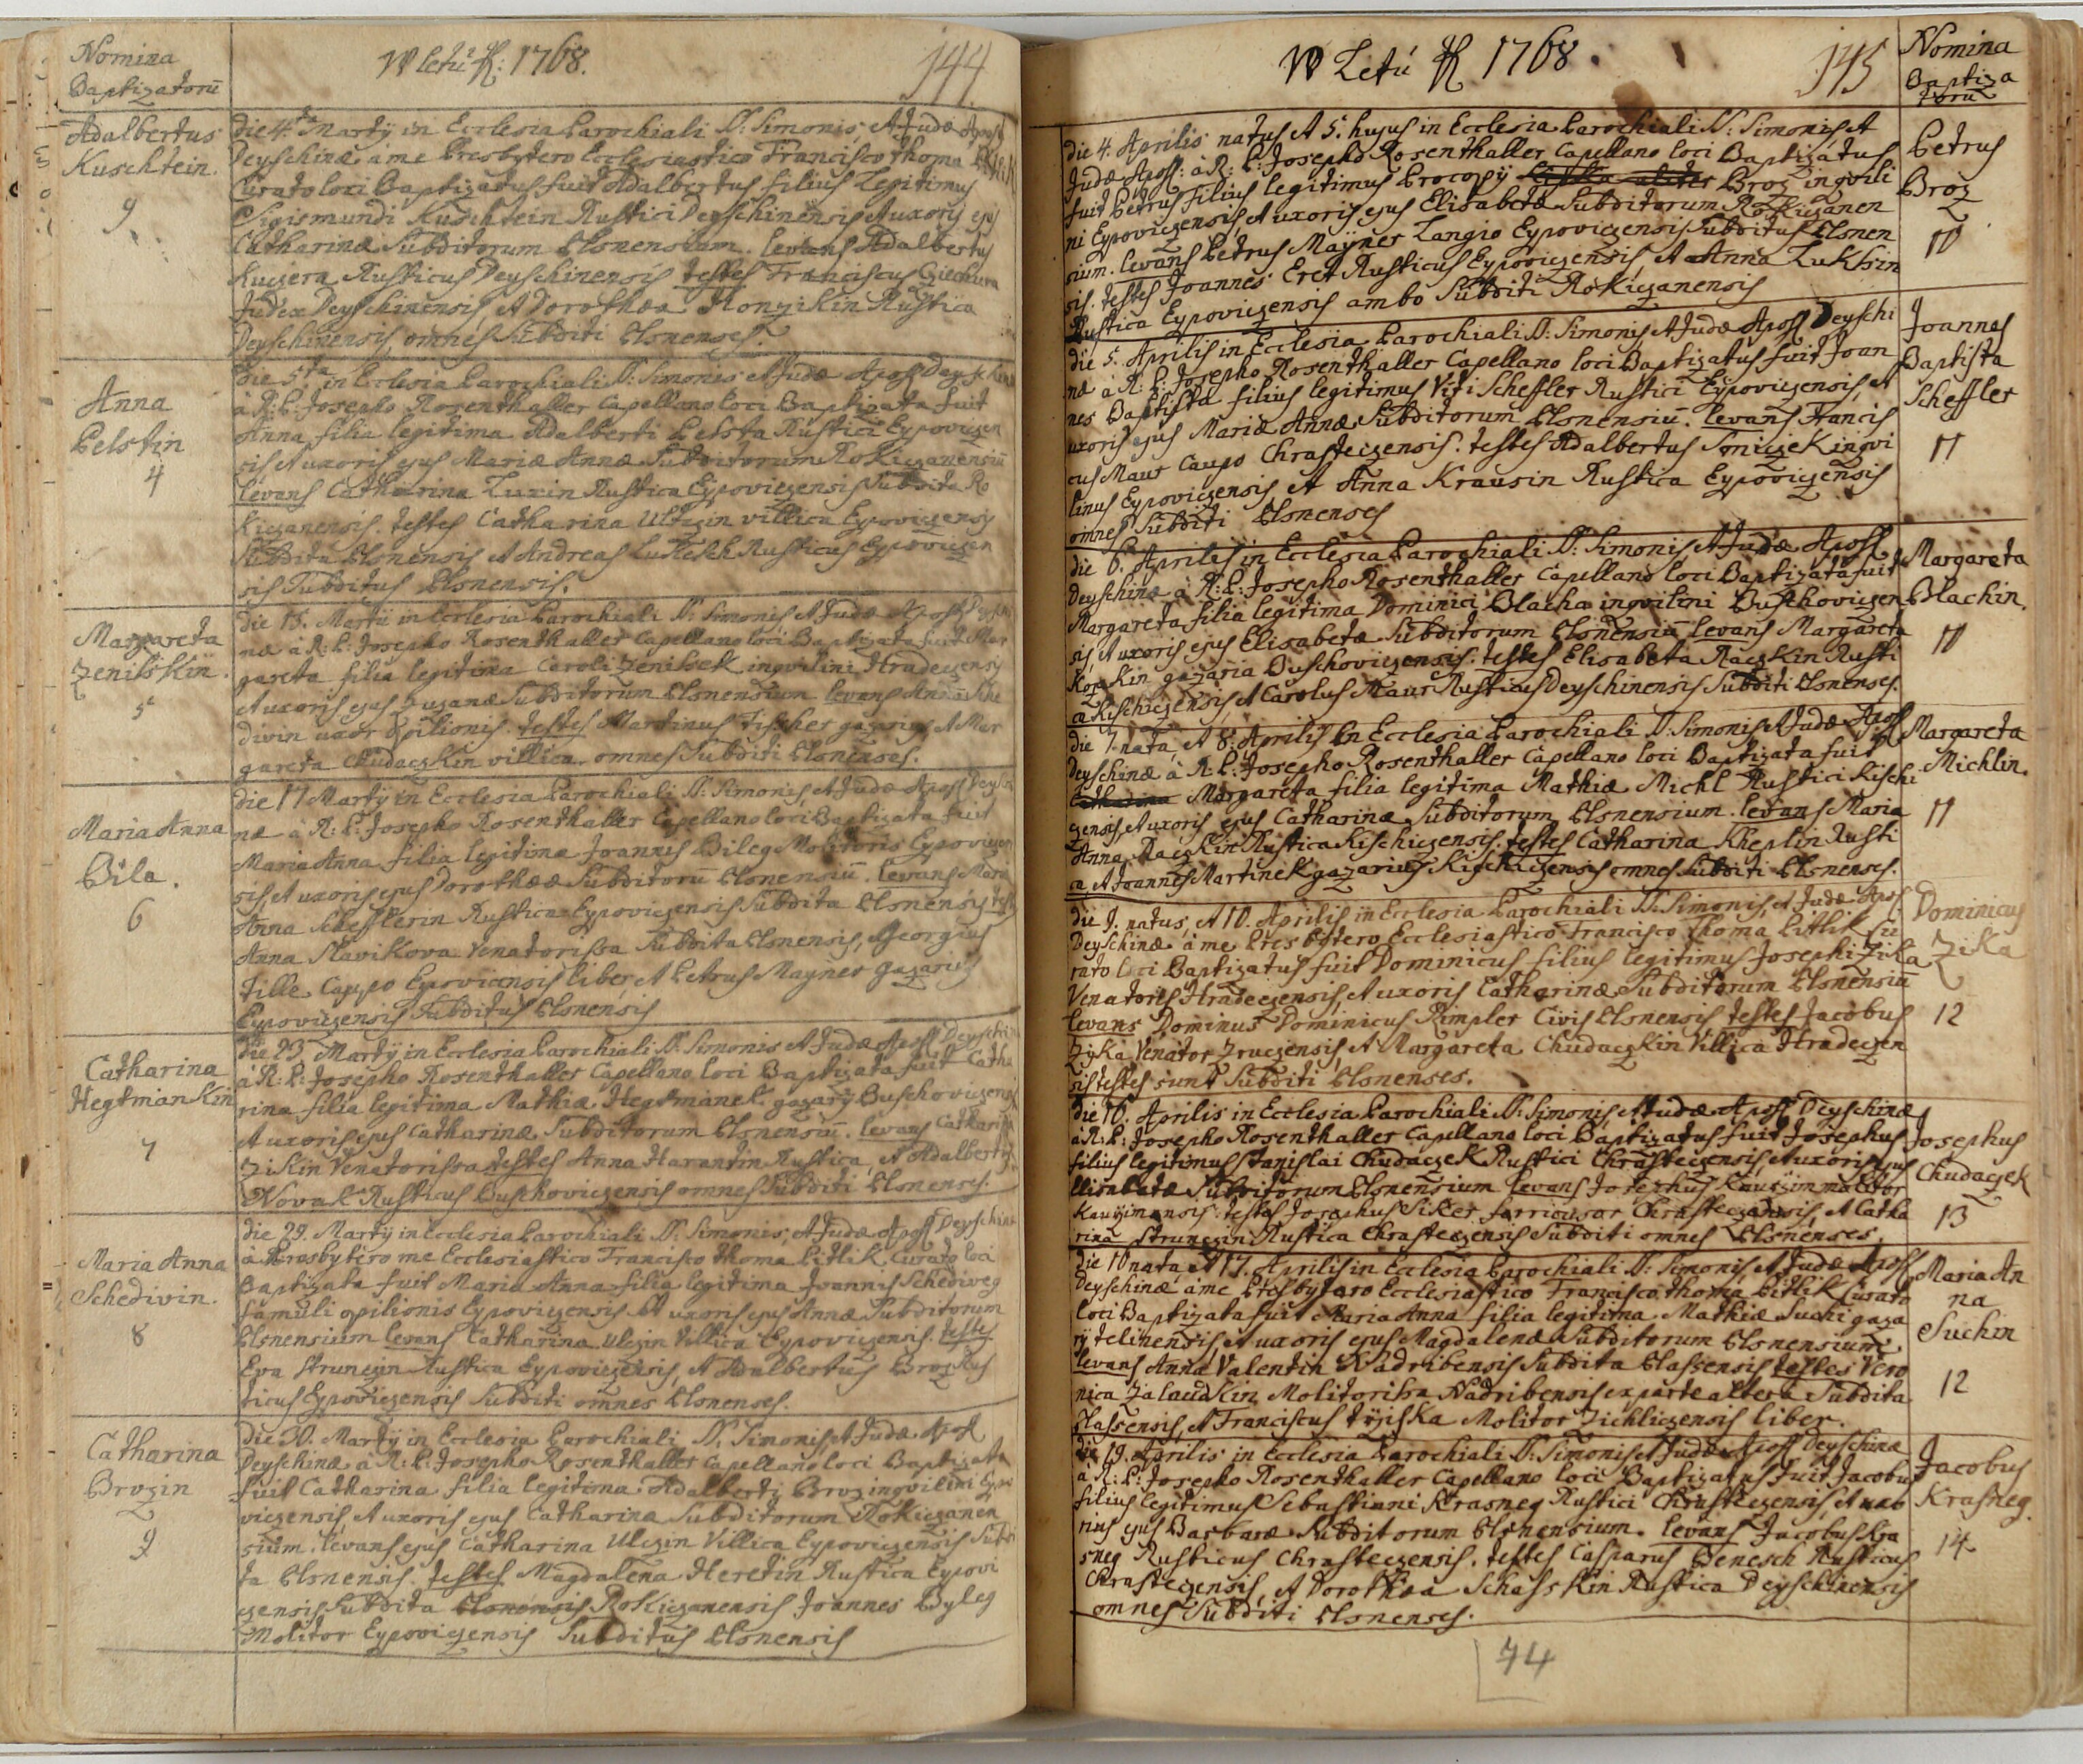 Nomina
Baptizatorū
W letú P: 1768.
144
Adalbertus
Kuschtein.
9
die 4ta Martÿ in Ecclesia Parochiali SS: Simonis, et Judæ Apost
Deyschinæ à me Presbytero Ecclesiastico Francisco Thoma Pitlik
Curato loci Baptizatus fuit Adalbertus filius Legitimus
Sigismundi Kuschtein Rustici Deyschinensis, et uxoris ejus
Catharinæ Subditorum Plsnensium. levans Adalbertus
Kuczera Rusticus Deyschinensis testes Franciscus Cziechura
Judex Deyschinensis, et Dorothæa Honzikin Rustica
Deyschinensis, omnes Subditi Plsnenses.
Anna
Pelstin
4
die 5ta in Ecclesia Parochiali SS: Simonis et Judæ Apost Deyschinæ
à R: P: Josepho Rosenthaller Capellano loci Baptizata fuit
Anna filia legitima Adalberti Pelsta Rustici Eypoviczen
sis et uxoris ejus Mariæ Annæ Subditorum Rokiczanensiū
levans Catharina Luxin Rustica Eypoviczensis Subdita Ro
kiczanensis. testes Catharina Ulczin villica Eypoviczensis
Subdita Plsnensis, et Andreas Lukesch Rusticus Eypoviczen
sis Subditus Plsnensis.
Margareta
Zenisskin.
5
die 15. Martii in Ecclesia Parochiali SS: Simonis et Judæ Apost Deyschi
næ à R: P: Josepho Rosenthaller Capellano loci Baptizata fuit Mar
gareta filia legitima Caroli Zenissek inqvilini Hradeczensis
et uxoris ejus Zuzanæ Subditorum Plsnensium levans Anna Sche
divin uxor Opilionis. testes Martinus Fischer gazarius et Mar
gareta Chudaczkin villica. omnes Subditi Plsnenses.
Maria Anna
Bila.
6
die 17 Martÿ in Ecclesia Parochiali SS: Simonis, et Judæ Apost Deyschi
næ à R: P: Josepho Rosenthaller Capellano loci Baptizata fuit
Maria Anna filia legitima Joannis Bileg Molitoris Eypoviczen
sis, et uxoris ejus Dorothææ Subditorū Plsnensiū. levans Maria
Anna Schefflerin Rustica Eypoviczensis Subdita Plsnensis testes
Anna Slavikova Venatorissa Subdita Plsnensis, Georgius
Tille Caupo Eypovicensis liber, et Petrus Mayner gazarius
Eypoviczensis Subditus Plsnensis
Catharina
Hegtmankin
7
die 23. Martÿ in Ecclesia Parochiali SS: Simonis et Judæ Apost Deyschinæ
à R: P: Josepho Rosenthaller Capellano loci Baptizata fuit Catha
rina filia legitima Mathiæ Hegtmanek gazarÿ Buschoviczensis
et uxoris ejus Catharinæ Subditorum Plsnensiū. levans Catharina
Zikin Venatorissa testes Anna Harantin Rustica, et Adalbertus
Novak Rusticus Buschoviczensis omnes Subditi Plsnenses.
Maria Anna
Schedivin.
8
die 29. Martÿ in Ecclesia Parochiali SS: Simonis, et Judæ Apost Deyschinæ
à Presbytero me Ecclesiastico Francisco Thoma Pitlik Curato loci
Baptizata fuit Maria Anna filia legitima Joannis Schediveg
famuli opilionis Eypoviczensis et uxoris ejus Annæ Subditorum
Plsnensium levans Catharina Ulczin Villica Eypoviczensis. testes
Eva Strunczin Rustica Eypoviczensis, et Adalbertus Broz Rus
ticus Eypoviczensis Subditi omnes Plsnenses.
Catharina
Brozin
9
die 30. Martÿ in Ecclesia Parochiali SS. Simonis, et Judæ Apost
Deyschinæ à R: P: Josepho Rosenthaller Capellano loci Baptizata
fuit Catharina filia legitima Adalberti Broz inqvilini Eypo
viczensis, et uxoris ejus Catharinæ Subditorum Rokiczanen
sium. levans ejus Catharina Ulczin Villica Eypoviczensis Subdi
ta Plsnensis. testes Magdalena Heretin Rustica Eypovi
czensis Subdita Plsnensis Rokiczanensis Joannes Byleg
Molitor Eypoviczensis Subditus Plsnensis
W Letú P 1768.
145
Nomina
Baptiza
torū
die 4. Aprilis natus et 5. hujus in Ecclesia Parochiali SS: Simonis, et
Judæ Apost: à R: P: Josepho Rosenthaller Capellano loci Baptizatus
fuit Petrus filius legitimus Procopÿ Broz inqvili
ni Eypoviczensis, et uxoris ejus Elisabetæ Subditorum Rokiczanen
sium. levans Petrus Maÿner Langio Eypoviczensis Subditus Plsnen
sis. testes Joannes Eret Rusticus Eypoviczensis, et Anna Lukssin
Rustica Eypoviczensis ambo Subditi Rokiczanensis
Petrus
Broz
10
die 5. Aprilis in Ecclesia Parochiali SS: Simonis, et Judæ Apost Deyschi
næ à R: P: Josepho Rosenthaller Capellano loci Baptizatus fuit Joan
nes Baptista filius legitimus Viti Scheffler Rustici Eypoviczensis, et
uxoris ejus Mariæ Annæ Subditorum Plsnensiū. levans Francis
cus Maur Caupo Chrasteczensis. testes Adalbertus Smiczek inqvi
linus Eypoviczensis et Anna Krausin Rustica Eypoviczensis
omnes Subditi Plsnenses
Joannes
Baptista
Scheffler
11
die 6. Aprilis in Ecclesia Parochiali SS: Simonis et Judæ Apost
Deyschinæ à R: P: Josepho Rosenthaller Capellano loci Baptizata fuit
Margareta filia legitima Dominici Blacha inqvilini Buschoviczen
sis, et uxoris ejus Elisabetæ Subditorum Plsnensiū levans Margareta
Kozkin gazaria Buschoviczensis. testes Elisabeta Raczkin Rusti
ca Kischiczensis, et Carolus Maur Rusticus Deyschinensis Subditi Plsnenses.
Margareta
Blachin.
10
die 7. nata, et 8. Aprilis in Ecclesia Parochiali SS: Simonis et Judæ Apost
Deyschinæ à R: P: Josepho Rosenthaller Capellano loci Baptizata fuit
Catharina Margareta filia legitima Mathiæ Michl Rustici Kischi
czensis et uxoris ejus Catharinæ Subditorum Plsnensium. levans Maria
Anna Raczkin Rustica Kischiczensis. testes Catharina Kheplin Rusti
ca, et Joannes Martinek gazarius Kischiczensis omnes Subditi Plsnenses.
Margareta
Michlin.
11
die 9. natus, et 10. Aprilis in Ecclesia Parochiali SS: Simonis, et Judæ Apos
Deyschinæ à me Presbytero Ecclesiastico Francisco Thoma Pitlik Cu
rato loci Baptizatus fuit Dominicus filius legitimus Josephi Zika
Venatoris Hradeczensis, et uxoris Catharinæ Subditorum Plsnensiū
levans Dominus Dominicus Rimpler Civis Plsnensis testes Jacobus
Zyka Venator Zruczensis, et Margareta Chudaczkin Villica Hradeczen
sis testes sunt Subditi Plsnenses.
Dominicus
Zika
12
die 10. Aprilis in Ecclesia Parochiali SS: Simonis, et Judæ Apost Deyschinæ
à R: P: Josepho Rosenthaller Capellano loci Baptizatus fuit Josephus
filius legitimus Stanislai Chudaczek Rustici Chrasteczensis, et uxoris ejus
Elisabetæ Subditorum Plsnensium levans Josephus Kauczim molitor
Kauczimensis. testes Josephus Siker Chrasteczensis, et Catha
rina Strunczin Rustica Chrasteczensis Subditi omnes Plsnenses.
Josephus
Chudaczek
13
die 10 nata, et 17. Aprilis in Ecclesia Parochiali SS: Simonis, et Judæ Apost
Deyschinæ à me Presbytero Ecclesiastico Francisco Thoma Pitlik Curato
loci Baptizata fuit Maria Anna filia legitima Mathiæ Suchi gaza
rÿ telinensis, et uxoris ejus Magdalenæ Subditorum Plsnensium
levans Anna Valentin Nadribensis Subdita Plassensis testes Vero
nica Zalaudkin Molitorissa Nadribensis ex parte altera Subdita
Plassensis, et Franciscus tÿsiska Molitor Zichliczensis liber.
Maria An
na
Suchin
12
die 19. Aprilis in Ecclesia Parochiali SS: Simonis et Judæ Apost Deyschinæ
à R: P: Josepho Rosenthaller Capellano loci Baptizatus fuit Jacobus
filius legitimus Sebastiani Krasneg Rustici Chrasteczensis, et uxo
ris ejus Barbaræ Subditorum Plsnensium. levans Jacobus Kra
sneg Rusticus Chrasteczensis. testes Casparus Benesch Rusticus
Chrasteczensis, et Dorothæa Schasskin Rustica Deyschinensis
omnes Subditi Plsnenses.
Jacobus
Krasneg.
14
74